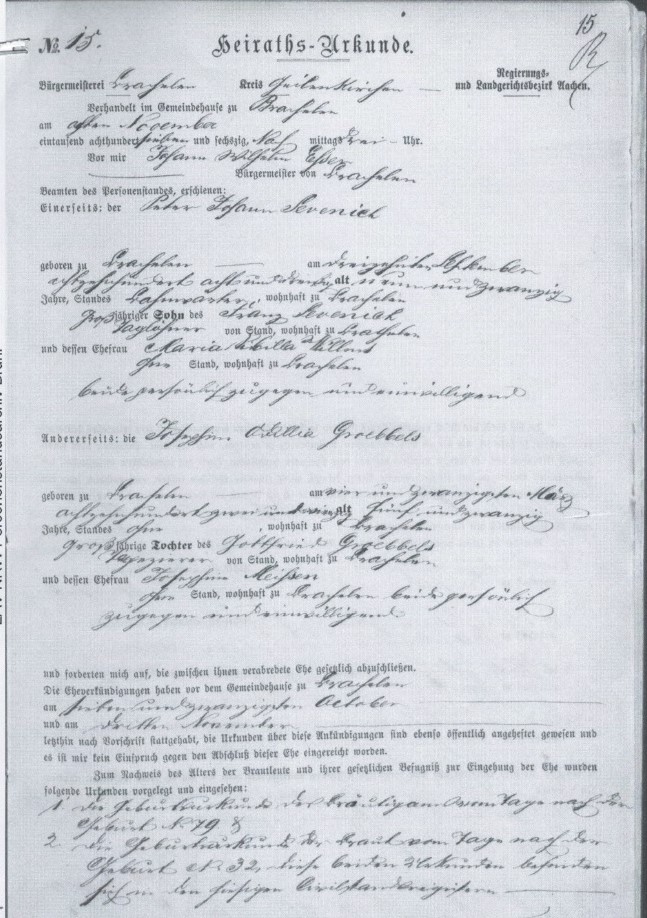 15
R
№ 15. Heiraths-Urkunde.
Regierungs-
Bürgermeisterei Brachelen Kreis Geilenkirchen — und Landgerichtsbezirk Aachen.
Verhandelt im Gemeindehause zu Brachelen
am November
eintausend achthundert sieben und sechszig, Nach mittags drei — Uhr.
Vor mir Johann Wilhelm Eßer
Bürgermeister von Brachelen
Beamten des Personenstandes, erschienen:
Einerseits: der Peter Johann Sevenich
geboren zu Brachelen — am dreizehnten September
achtzehnhundert acht und dreißig alt neun und zwanzig
Jahre, Standes Bahnwärter, wohnhaft zu Brachelen
Großjähriger Sohn des Franz Sevenich
Taglöhner von Stand, wohnhaft zu Brachelen
und dessen Ehefrau Maria Sibilla
ohne Stand, wohnhaft zu Brachelen
beide persönlich zugegen und einwilligend
Andererseits: die Josephine Odillia Groebbels
geboren zu Brachelen — am vier und zwanzigsten März
achtzehnhundert zwei und vierzig alt fünf und zwanzig
Jahre, Standes ohne, wohnhaft zu Brachelen
Großjährige Tochter des Gottfried Groebbels
Tapezierer von Stand, wohnhaft zu Brachelen
und dessen Ehefrau Josephine Meißen
ohne Stand, wohnhaft zu Brachelen beide persönlich
zugegen und einwilligend.
und forderten mich auf, die zwischen ihnen verabredete Ehe gesetzlich abzuschließen.
Die Eheverkündigungen haben vor dem Gemeindehause zu Brachelen
am sieben und zwanzigsten October
und am dritten November
letzthin nach Vorschrift stattgehabt, die Urkunden über diese Ankündigungen sind ebenso öffentlich angeheftet gewesen und
es ist mir kein Einspruch gegen den Abschluß dieser Ehe eingereicht worden.
Zum Nachweis des Alters der Brautleute und ihrer gesetzlichen Befugniß zur Eingehung der Ehe wurden
folgende Urkunden vorgelegt und eingesehen:
1 Die Geburtsurkunde des Bräutigams vom Tage nach der
Geburt N. 79
2 Die Geburtsurkunde der Braut vom Tage nach der
Geburt N. 32, diese beiden Urkunden befinden
sich in den hiesigen Civilstandsregistern